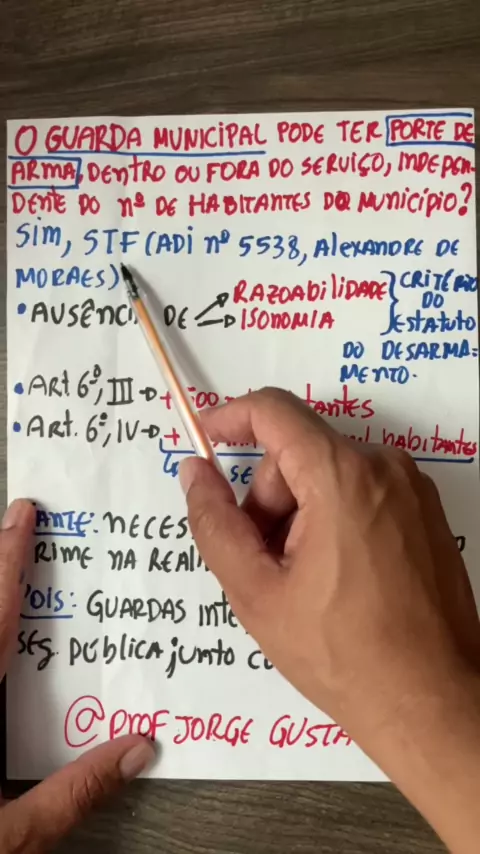 O GUARDA MUNICIPAL PODE TER PORTE DE
ARMA, DENTRO OU FORA DO SERVIÇO, INDEPEN-
DENTE DO Nº DE HABITANTES DO MUNICÍPIO?
SIM, STF (ADI Nº 5538, ALEXANDRE DE
MORAES)
• AUSÊNCI DE RAZOABILIDADE
ISONOMIA
CRITÉRIO
DO
ESTATUTO
DO DESARMA-
MENTO.
• ART 6º, III → + 500
• ART. 6º, IV → + habitantes
SE
ANTE: NECES
RIME NA REALI
OIS: GUARDAS INTE
SEG. PÚBLICA JUNTO C
@PROF JORGE GUSTA